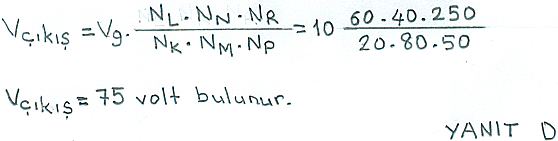 Vçıkış = Vg. NL . NN . NR / NK . NM . NP = 10 60 . 40 . 250 / 20 . 80 . 50
Vçıkış = 75 volt bulunur.
YANIT D